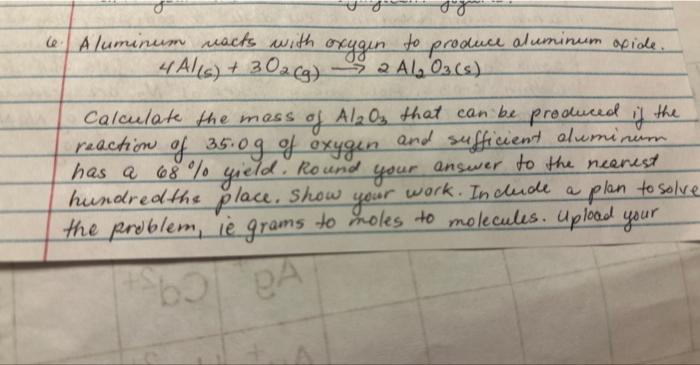 6. Aluminum reacts with oxygen to produce aluminum oxide.
4 Al(s) + 3 O2(g) → 2 Al2O3(s)
Calculate the mass of Al2O3 that can be produced if the
reaction of 35.0g of oxygen and sufficient aluminum
has a 68% yield. Round your answer to the nearest
hundredths place. Show your work. Include a plan to solve
the problem, ie grams to moles to molecules. Upload your
Ag+
Cd2+